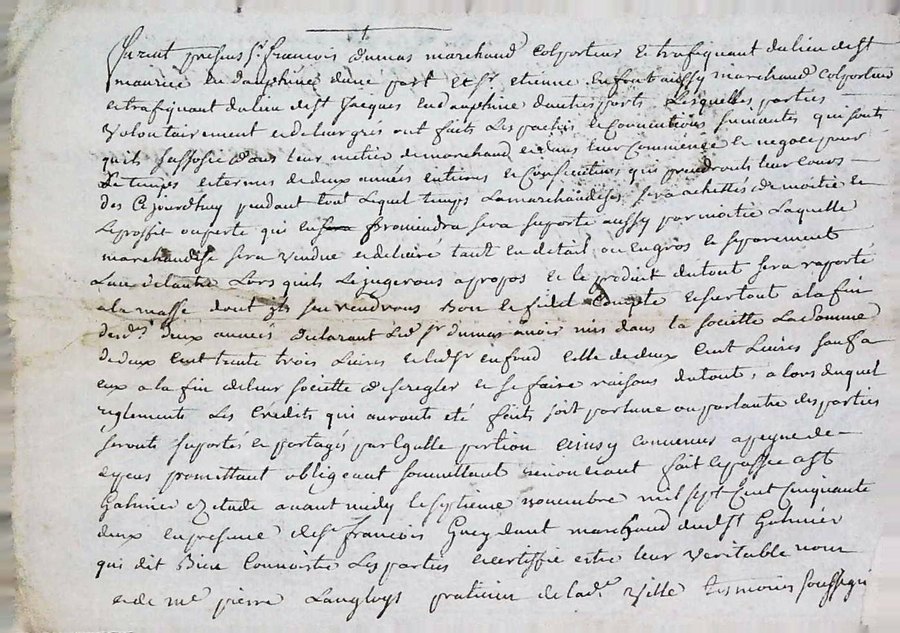 furent presens Sr francois dumas marchand colporteur et trafiquant du lieu de St
maurice en dauphine dune part et Sr etienne enfont aussy marchand colporteur
et trafiquant du lieu de St Jacques en dauphine dautres parts Lesquelles parties
volontairement et de leur grés ont faits Les pactes et conventions suivantes qui sont
quils sassosie dans leur metier de marchand et dans leur commerce et negoce pour
Le temps et termes de deux années entieres et consecutives qui prendronts leur cours
des ce jourdhuy pendant tout Lequel temps La marchandises sera achettes de moitie et
Le proffit ou perte qui en proviendra sera suporté aussy par moitie Laquelle
marchandise sera vendue et delivré tant en detail ou en gros et separement
Lun de Lautre Lors quils Le jugerons a propos et le produit du tout sera raporté
a la masse dont ils sen rendrons bon et fidel compte et surtout a la fin
desd. deux années declarant Led. Sr dumas avoir mis dans la societte La somme
de deux cent trente trois Livres et led Sr enfond celle de deux cent Livres sauf a
eux a la fin de leur societte de se regler et se faire raisons du tout, a lors duquel
reglements Les credits qui auronts eté faits soit par lune ou par lautre des parties
seronts suportés et partagés par Egalle portion ainsy convenus a peyne de
tyens promettant obligeant soumettant renoncant fait et passée a St
Galmier Ez etude avant midy le septieme novembre mil sept cent cinquante
deux en presence de Sr francois Gueydant marchand dud St Galmier
qui dit Bien connoitre Les parties et certiffie estre leur veritable nom
et de me pierre Langloys praticien de lad. ville tesmoins soussigné